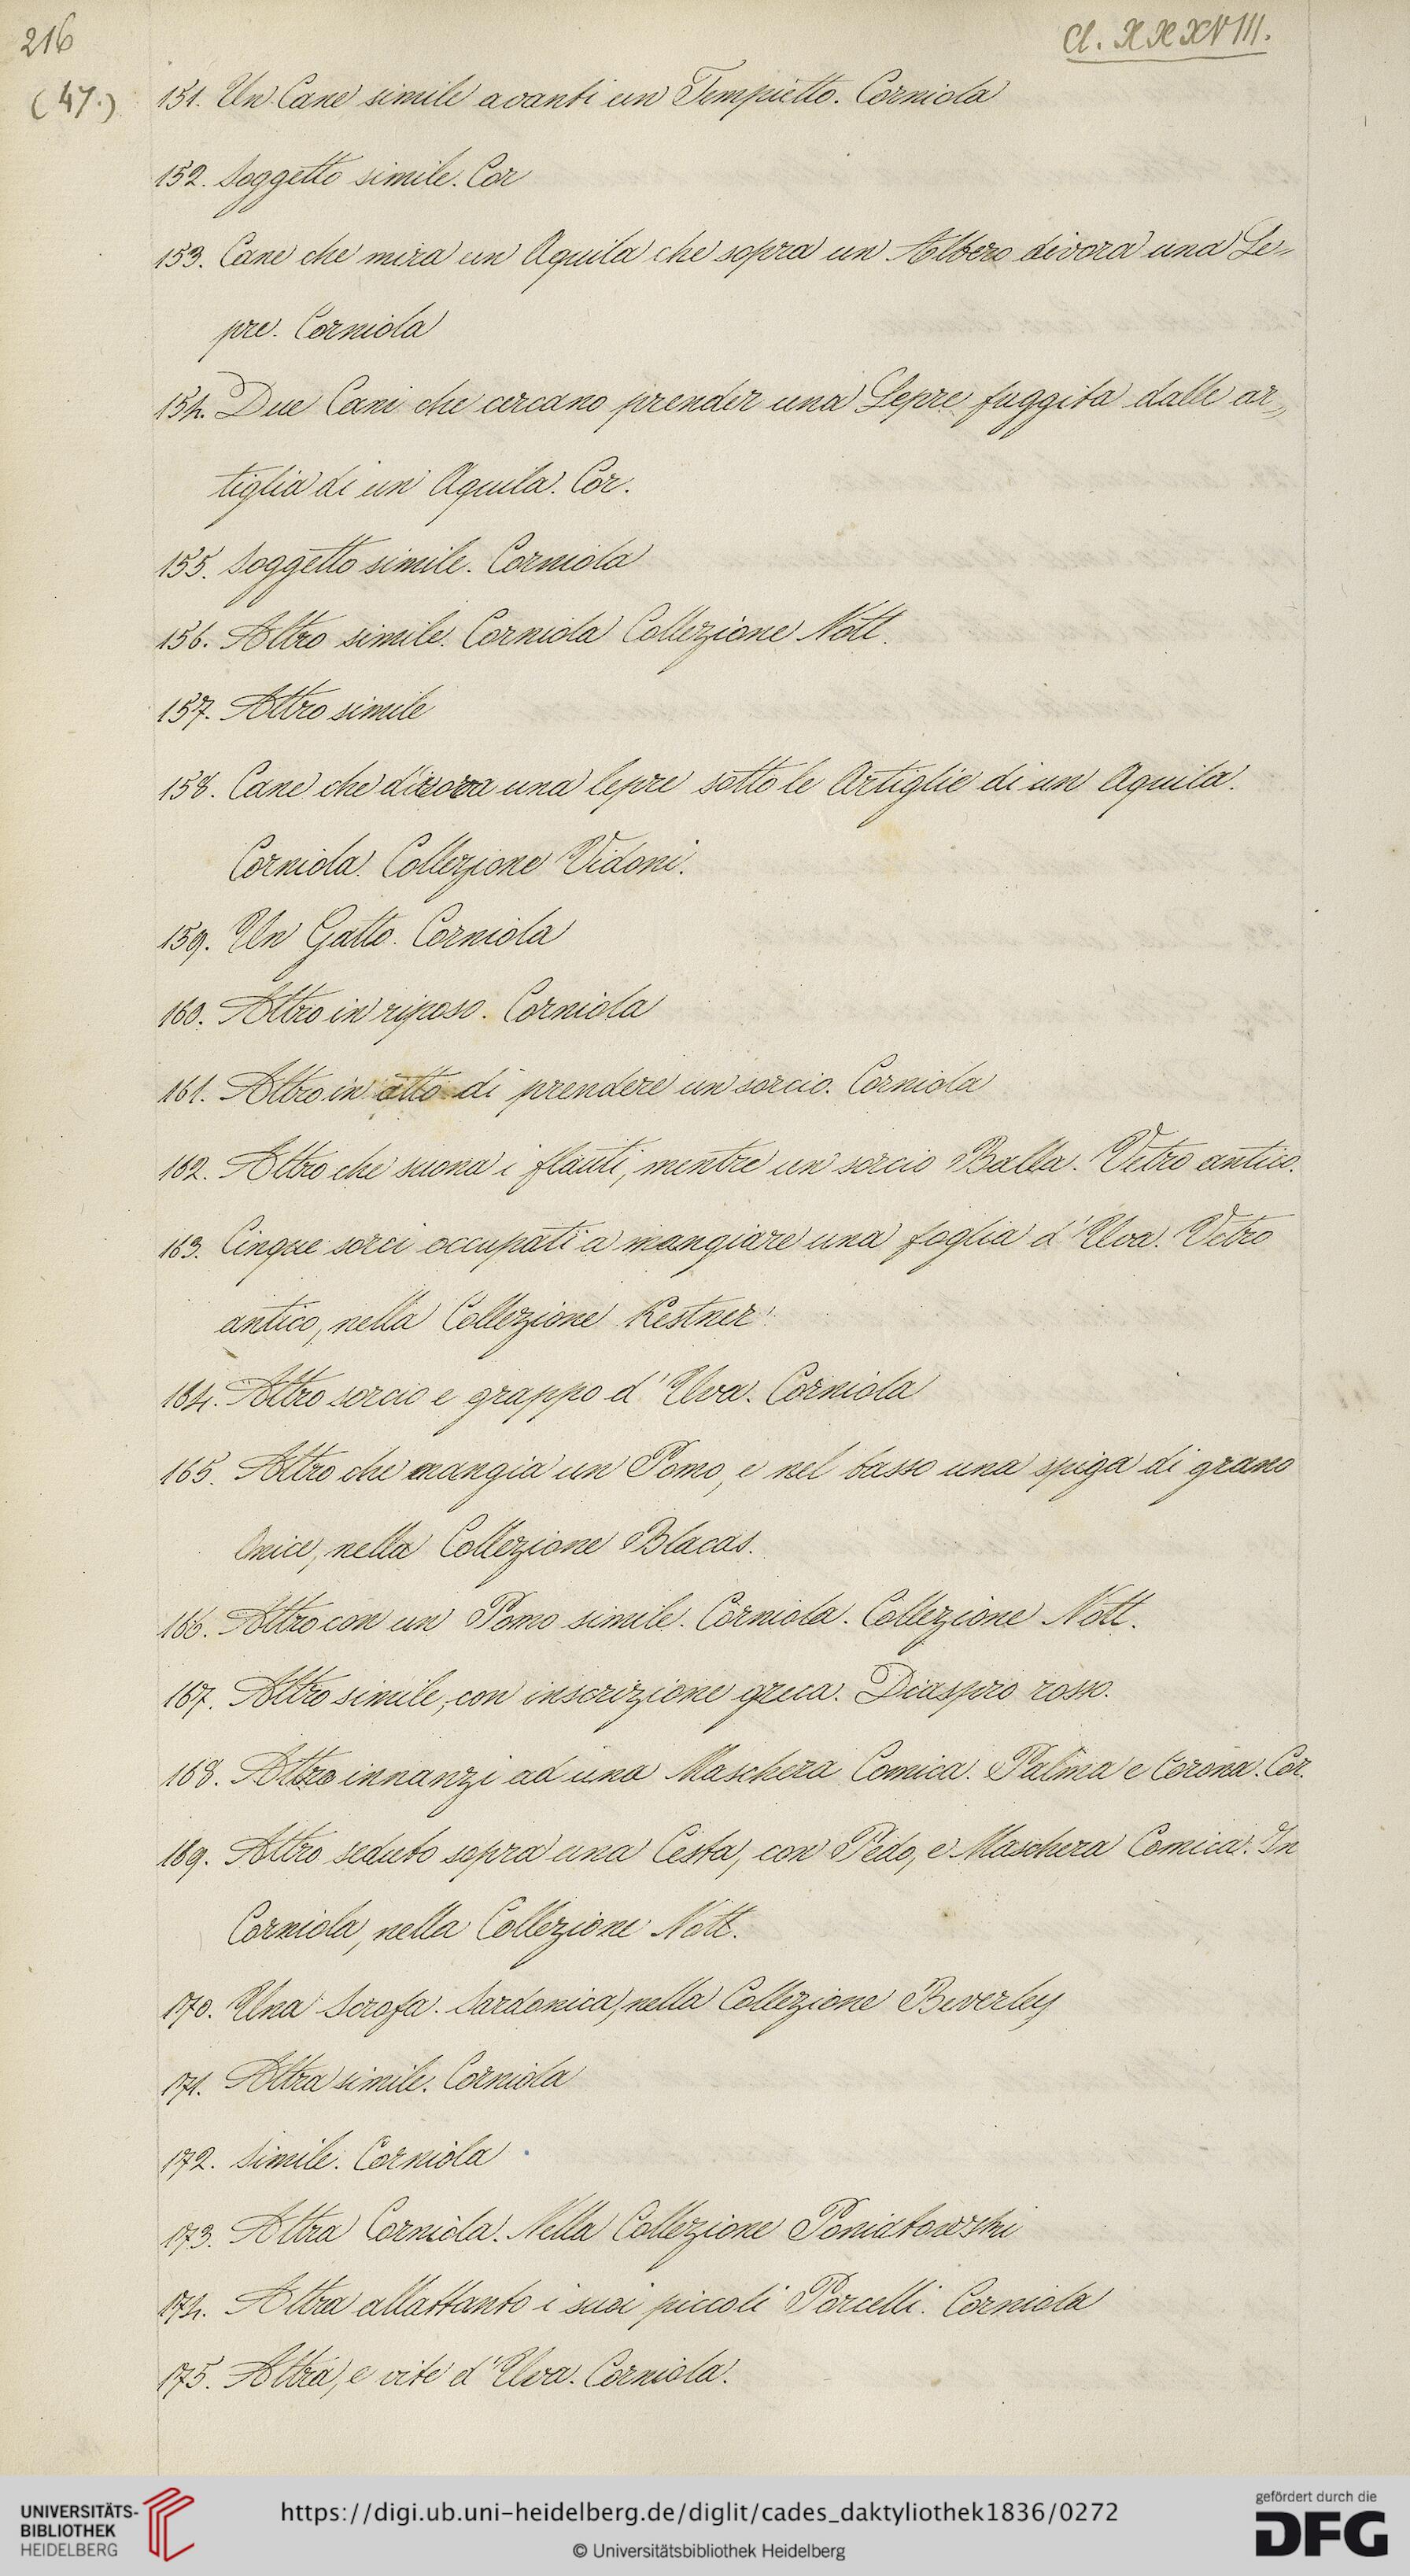 216
Cl. XXXVIII.
(47.)
151. Un Cane simile avanti un Tempietto. Corniola
152. Soggetto simile. Cor
153. Cane che mira un Aquila che sopra un Albero divora una Le=
pre. Corniola
154. Due Cani che cercano prender una Lepre fuggita dalle ar=
tiglia di un Aquila. Cor.
155. Soggetto simile. Corniola
156. Altro simile. Corniola Collezione Nott.
157. Altro simile
158. Cane che divora una lepre sotto le Artiglie di un Aquila.
Corniola. Collezione Vidoni.
159. Un Gatto. Corniola
160. Altro in riposo. Corniola
161. Altro in atto di prendere un sorcio. Corniola
162. Altro che suona i flauti, mentre un sorcio Balla. Vetro antico.
163. Cinque sorci occupati a mangiare una foglia d'Uva. Vetro
antico, nella Collezione Kestner.
164. Altro sorcio e grappo d'Uva. Corniola
165. Altro che mangia un Pomo, e nel basso una spiga di grano
Onice, nella Collezione Blacas.
166. Altro con un Pomo simile. Corniola. Collezione Nott.
167. Altro simile, con inscrizione greca. Diaspro rosso.
168. Altro innanzi ad una Maschera Comica. Palma e Corona. Cor.
169. Altro seduto sopra una Cesta, con Pedo, e Maschera Comica. In
Corniola, nella Collezione Nott.
170. Una Scrofa. Sardonica, nella Collezione Beverley
171. Altra simile. Corniola
172. Simile. Corniola
173. Altra Corniola. Nella Collezione Poniatowski
174. Altra allattanto i suoi piccoli Porcelli. Corniola
175. Altra, e vite d'Uva. Corniola.
UNIVERSITÄTS-
BIBLIOTHEK
HEIDELBERG
https://digi.ub.uni-heidelberg.de/diglit/cades_daktyliothek1836/0272
© Universitätsbibliothek Heidelberg
gefördert durch die
DFG